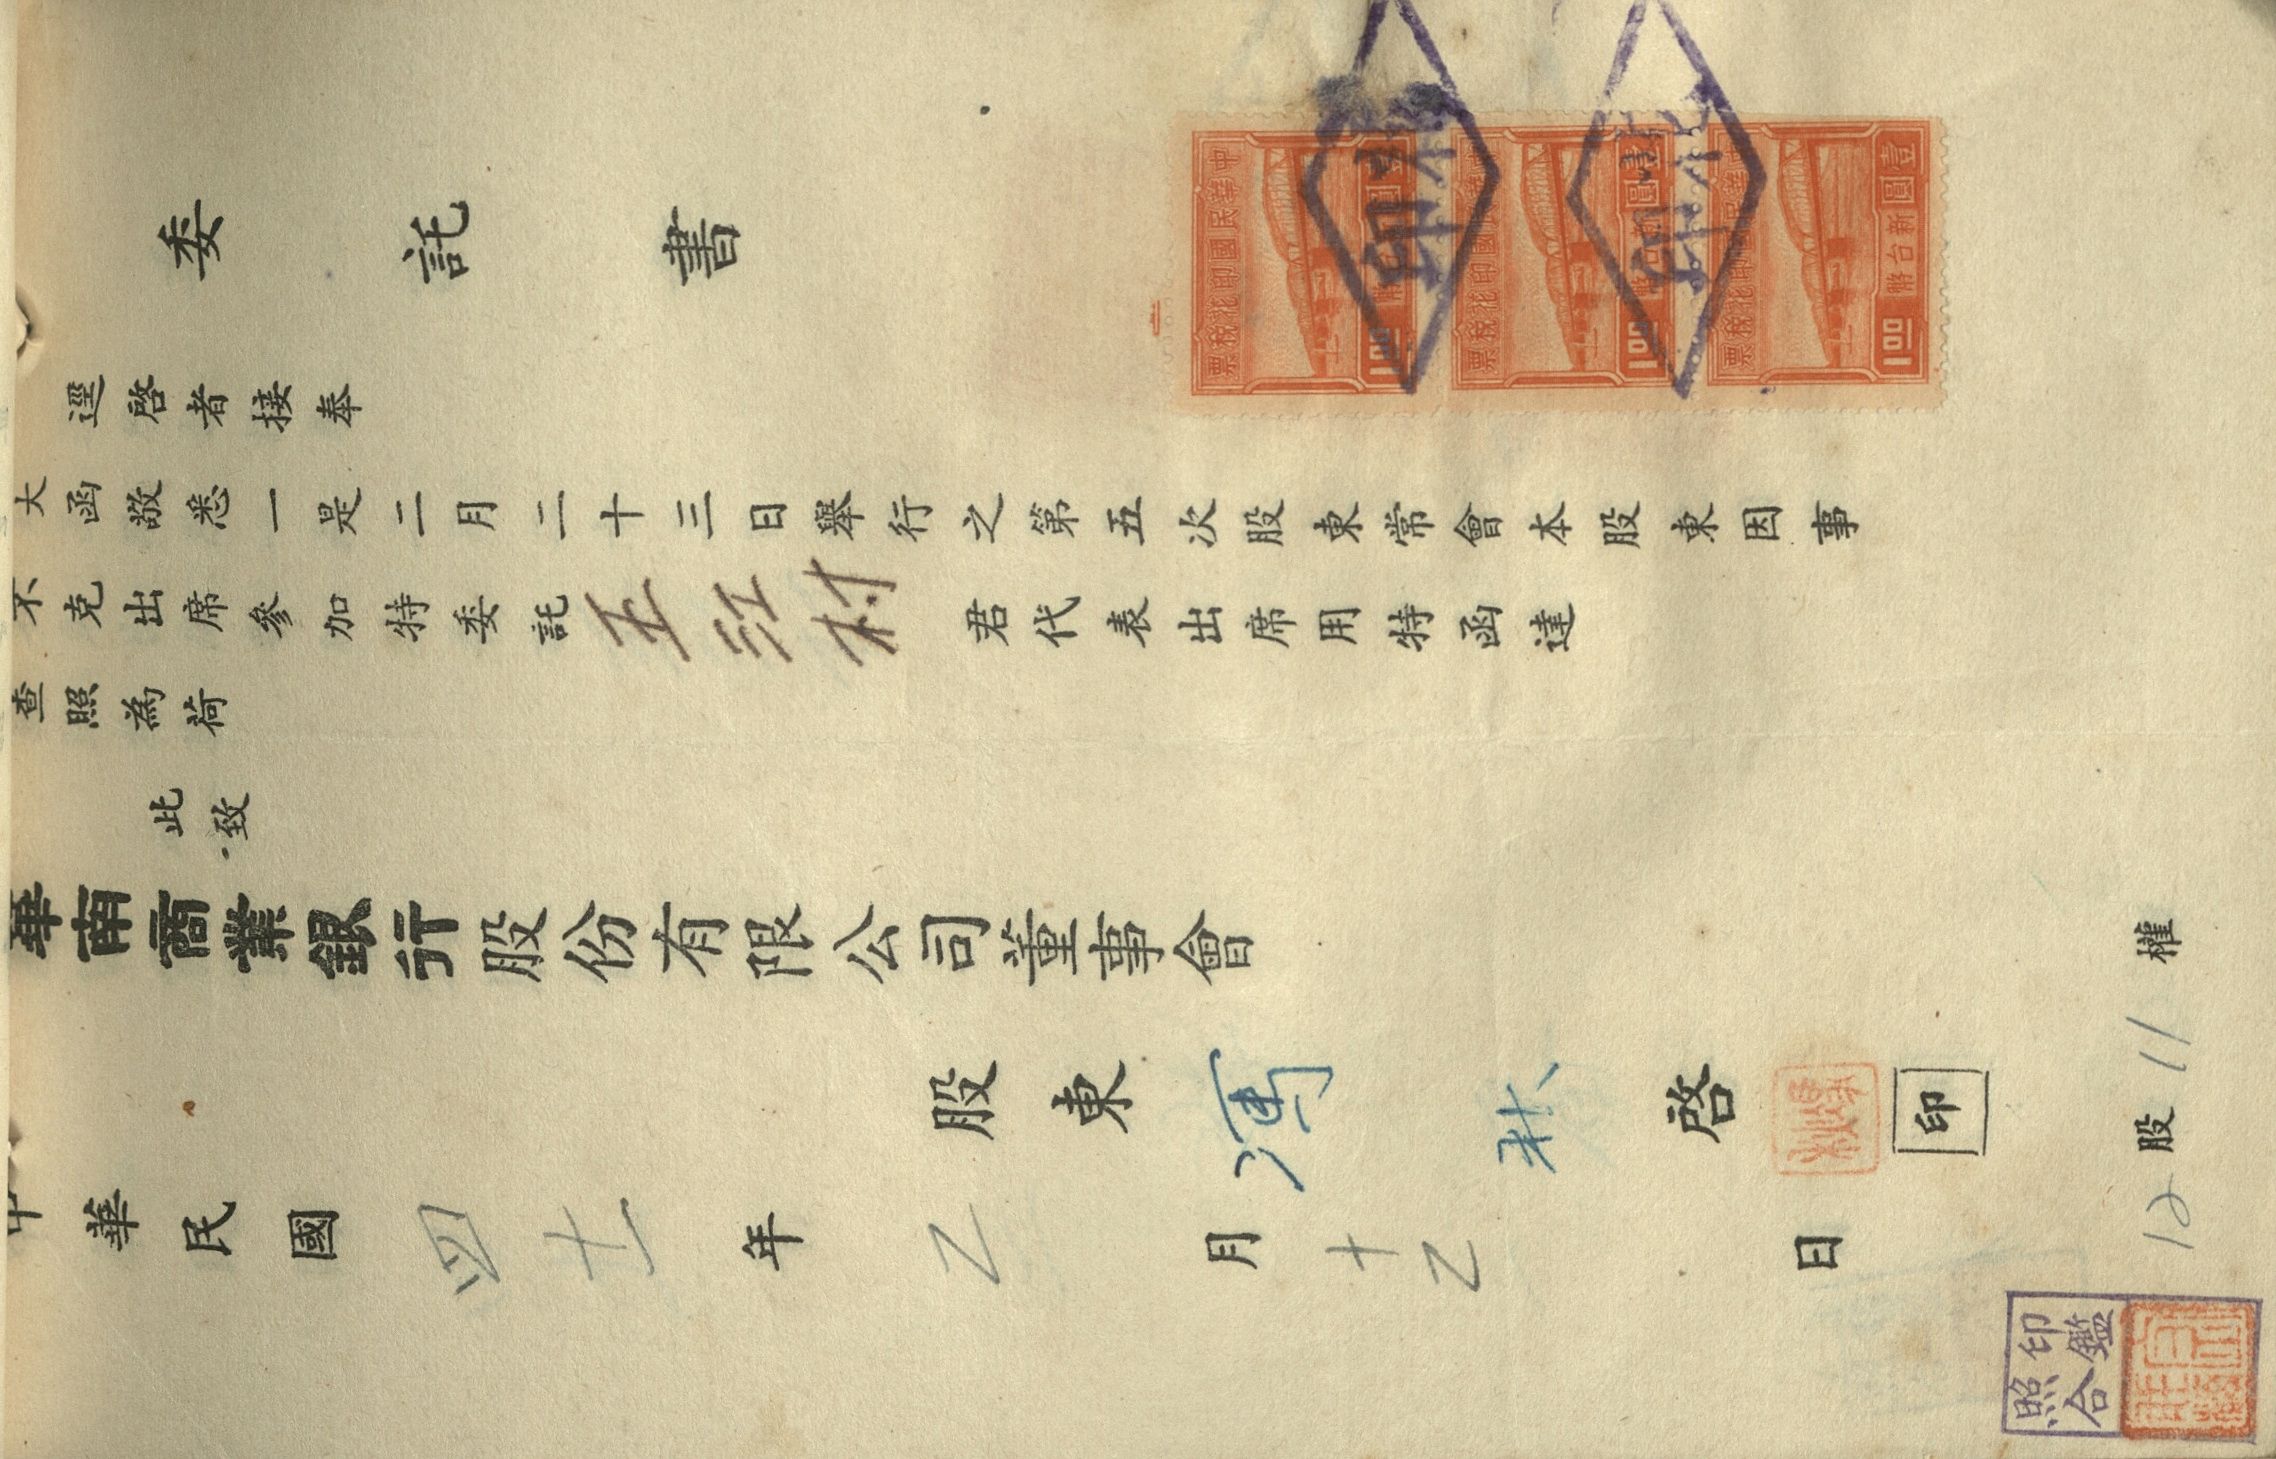 委託書
逕啓者接奉
大函敬悉一是二月二十三日舉行之第五次股東常會本股東因事
不克出席參加特委託王紅村君代表出席用特函達
查照為荷
此致
華南商業銀行股份有限公司董事會
股東 啓 印
中華民國四十二年乙月十乙日
12股11權
印鑑照合
中華民國印花稅票
壹圓
新台幣
1.00
中華民國印花稅票
壹圓
新台幣
1.00
中華民國印花稅票
壹圓
新台幣
1.00